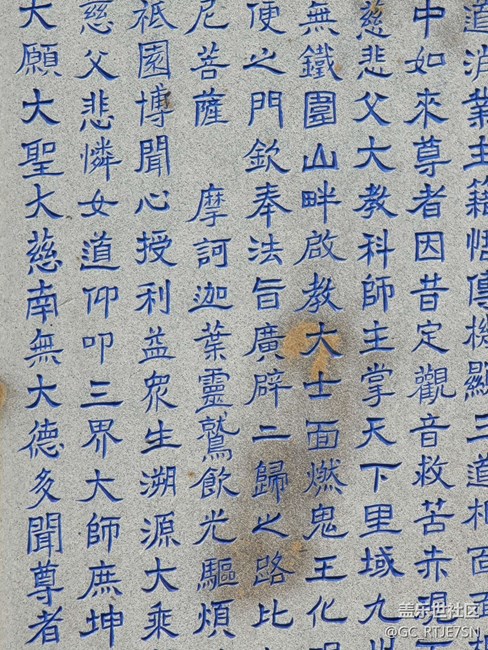 道消業主籍悟傳機顯三道相面
中如來尊者因昔定觀音救苦赤混
慈悲父大教科師主掌天下里域九
無鐵圍山畔啟教大士面燃鬼王化
便之門欽奉法旨廣辟二歸之路比
尼菩薩 摩訶迦葉靈鷲飲光驅煩
祇園博聞心授利益眾生溯源大乘
慈父悲憐女道仰叩三界大師庶坤
大願大聖大慈南無大德多聞尊者
盖乐世社区
@GC_RTJE7SN